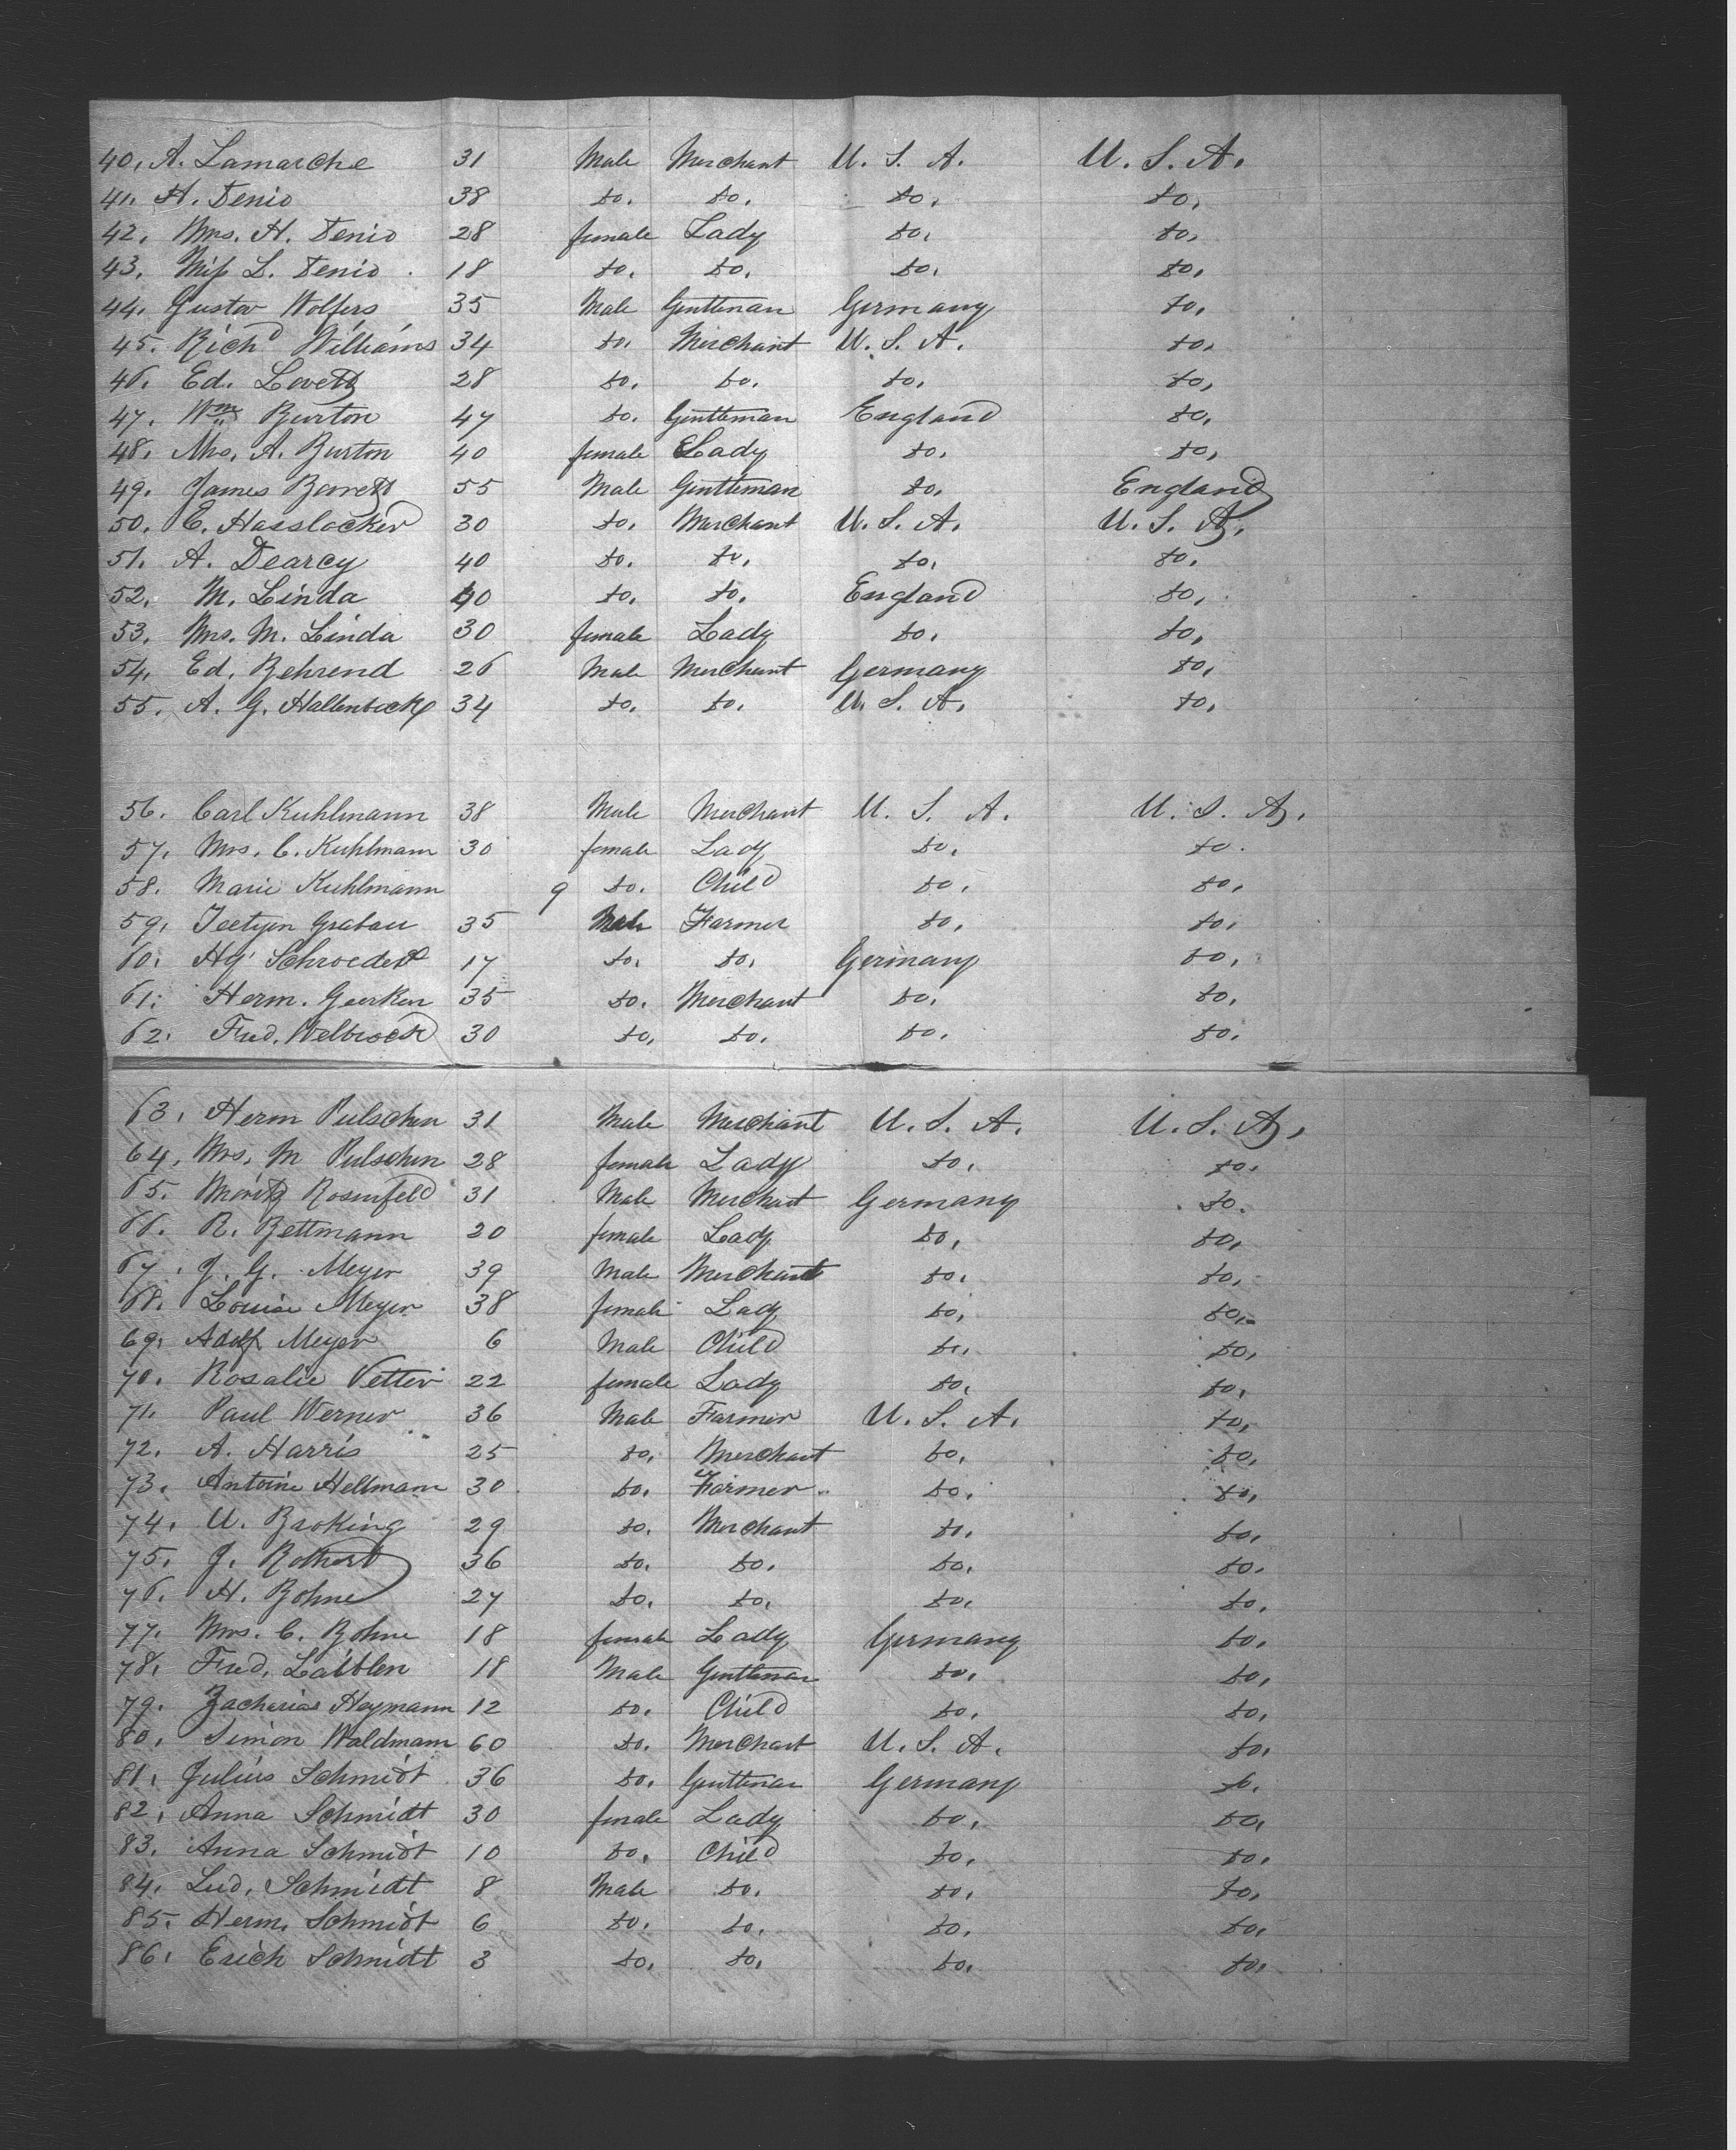 40. A. Lamarche 31 Male Merchant U. S. A. U. S. A.
41. H. Denio 38 do. do. do. do.
42. Mrs. H. Denio 28 female Lady do. do.
43. Miss L. Denio 18 do. do. do. do.
44. Gustav Wolfers 35 Male Gentleman Germany do.
45. Richd Williams 34 do. Merchant U. S. A. do.
46. Ed. Lovett 28 do. do. do. do.
47. Wm Burton 47 do. Gentleman England do.
48. Mrs. A. Burton 40 female Lady do. do.
49. James Barrett 55 Male Gentleman do. England
50. E. Hasslocker 30 do. Merchant U. S. A. U. S. A.
51. A. Dearcy 40 do. do. do. do.
52. M. Linda 40 do. do. England do.
53. Mrs. M. Linda 30 female Lady do. do.
54. Ed. Behrend 26 Male Merchant Germany do.
55. A. G. Hallenback 34 do. do. U. S. A. do.
56. Carl Kuhlmann 38 Male Merchant U. S. A. U. S. A.
57. Mrs. C. Kuhlmann 30 female Lady do. do.
58. Marie Kuhlmann 9 do. Child do. do.
59. Grabau 35 Male Farmer do. do.
60. Hy Schroeder 17 do. do. Germany do.
61. Herm. Geerken 35 do. Merchant do. do.
62. Fred. Welbrock 30 do. do. do. do.
63. Herm Pulschen 31 Male Merchant U. S. A. U. S. A.
64. Mrs. M Pulschen 28 female Lady do. do.
65. Moritz Rosenfeld 31 Male Merchant Germany do.
66. R. Bettmann 20 female Lady do. do.
67. J. G. Meyer 39 Male Merchant do. do.
68. Louise Meyer 38 female Lady do. do.
69. Adolf Meyer 6 Male Child do. do.
70. Rosalie Vetter 22 female Lady do. do.
71. Paul Werner 36 Male Farmer U. S. A. do.
72. A. Harris 25 do. Merchant do. do.
73. Antoine Hellmann 30 do. Farmer do. do.
74. U. Broking 29 do. Merchant do. do.
75. J. Rothert 36 do. do. do. do.
76. H. Bohne 27 do. do. do. do.
77. Mrs. C. Bohne 18 female Lady Germany do.
78. Fred. Laiblen 18 Male Gentleman do. do.
79. Zacharias Heymann 12 do. Child do. do.
80. Simon Waldmann 60 do. Merchant U. S. A. do.
81. Julius Schmidt 36 do. Gentleman Germany do.
82. Anna Schmidt 30 female Lady do. do.
83. Anna Schmidt 10 do. Child do. do.
84. Lud. Schmidt 8 Male do. do. do.
85. Herm. Schmidt 6 do. do. do. do.
86. Erich Schmidt 3 do. do. do. do.